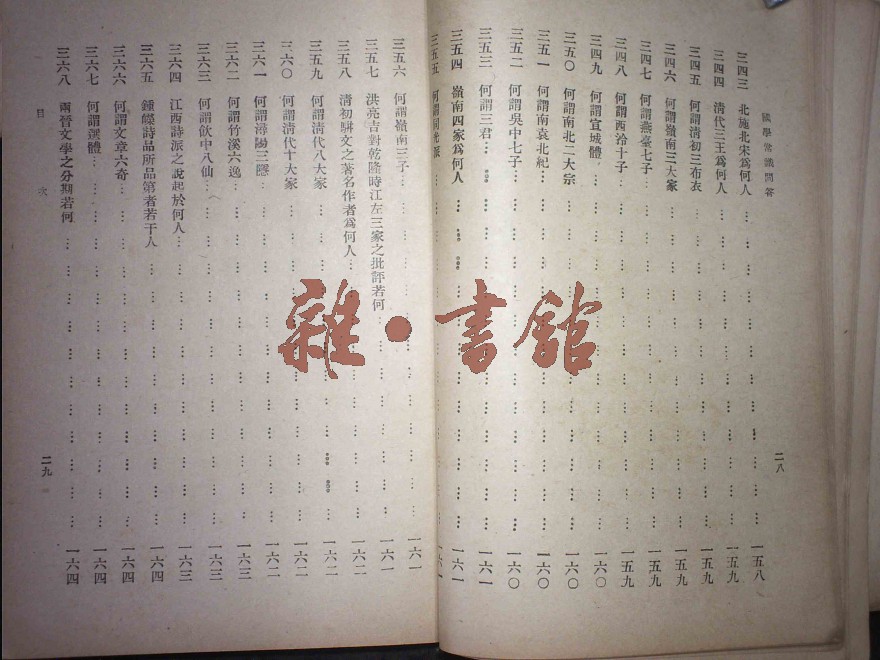 國學常識問答
三四三 北施北宋爲何人 一五八
三四四 清代三王爲何人 一五九
三四五 何謂清初三布衣 一五九
三四六 何謂嶺南三大家 一五九
三四七 何謂燕臺七子 一五九
三四八 何謂西泠十子 一五九
三四九 何謂宣城體 一六〇
三五〇 何謂南北二大宗 一六〇
三五一 何謂南袁北紀 一六〇
三五二 何謂吳中七子 一六〇
三五三 何謂三君 一六一
三五四 嶺南四家爲何人 一六一
三五五 何謂同光派 一六一
二八
三五六 何謂嶺南三子 一六一
三五七 洪亮吉對乾隆時江左三家之批評若何 一六一
三五八 清初駢文之著名作者爲何人 一六二
三五九 何謂清代八大家 一六二
三六〇 何謂清代十大家 一六二
三六一 何謂潯陽三隱 一六二
三六二 何謂竹溪六逸 一六三
三六三 何謂飲中八仙 一六三
三六四 江西詩派之說起於何人 一六三
三六五 鍾嶸詩品所品第者若干人 一六四
三六六 何謂文章六奇 一六四
三六七 何謂選體 一六四
三六八 兩晉文學之分期若何 一六四
目次
二九
雜·書館